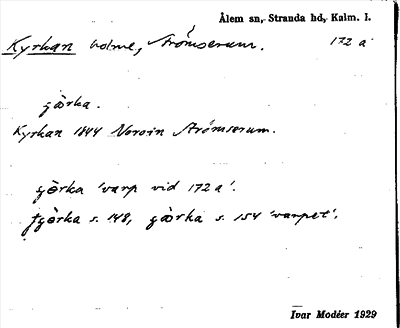 Ålem sn, Stranda hd, Kalm. l.
Kyrkan holme, Strömserum. 172 a
gö̀rka.
Kyrkan 1844 Noroin Strömserum.
gö̀rka 'varp vid 172 a'.
gö̀rka s. 148, gö̀rka s. 154 'varpet'.
Ivar Modéer 1929